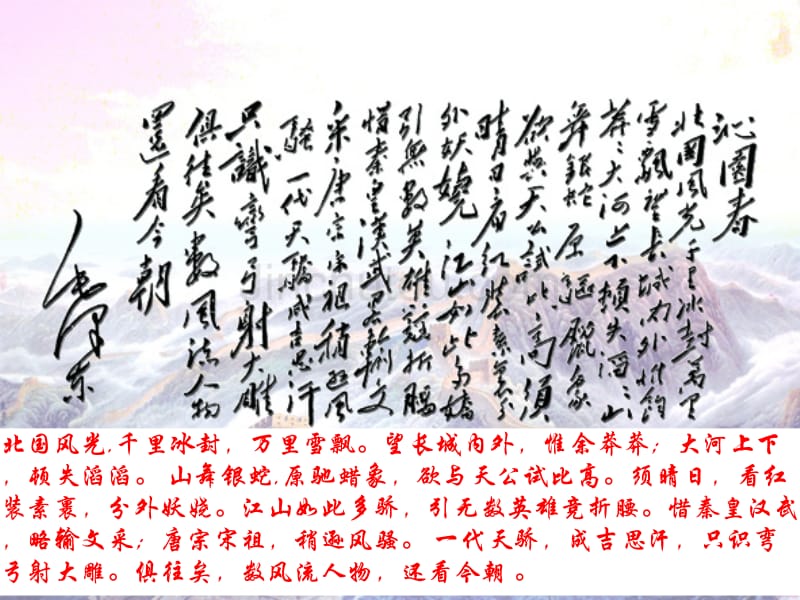 沁園春
北國風光千里冰封萬里
雪飄望长城内外惟餘
莽〻大河上下頓失滔〻山
舞銀蛇原驱臘象
欲與天公試比高須
晴日看红装素裹分
外妖嬈江山如此多嬌
引無數英雄競折腰
惜秦皇漢武略輸文
采唐宗宋祖稍逊風
騷一代天驕成吉思汗
只識彎弓射大雕
俱往矣數風流人物
還看今朝
毛澤东
北国风光,千里冰封，万里雪飘。望长城内外，惟余莽莽；大河上下
，顿失滔滔。 山舞银蛇,原驰蜡象，欲与天公试比高。须晴日，看红
装素裹，分外妖娆。江山如此多骄，引无数英雄竞折腰。惜秦皇汉武
，略输文采；唐宗宋祖，稍逊风骚。 一代天骄，成吉思汗，只识弯
弓射大雕。俱往矣，数风流人物，还看今朝 。